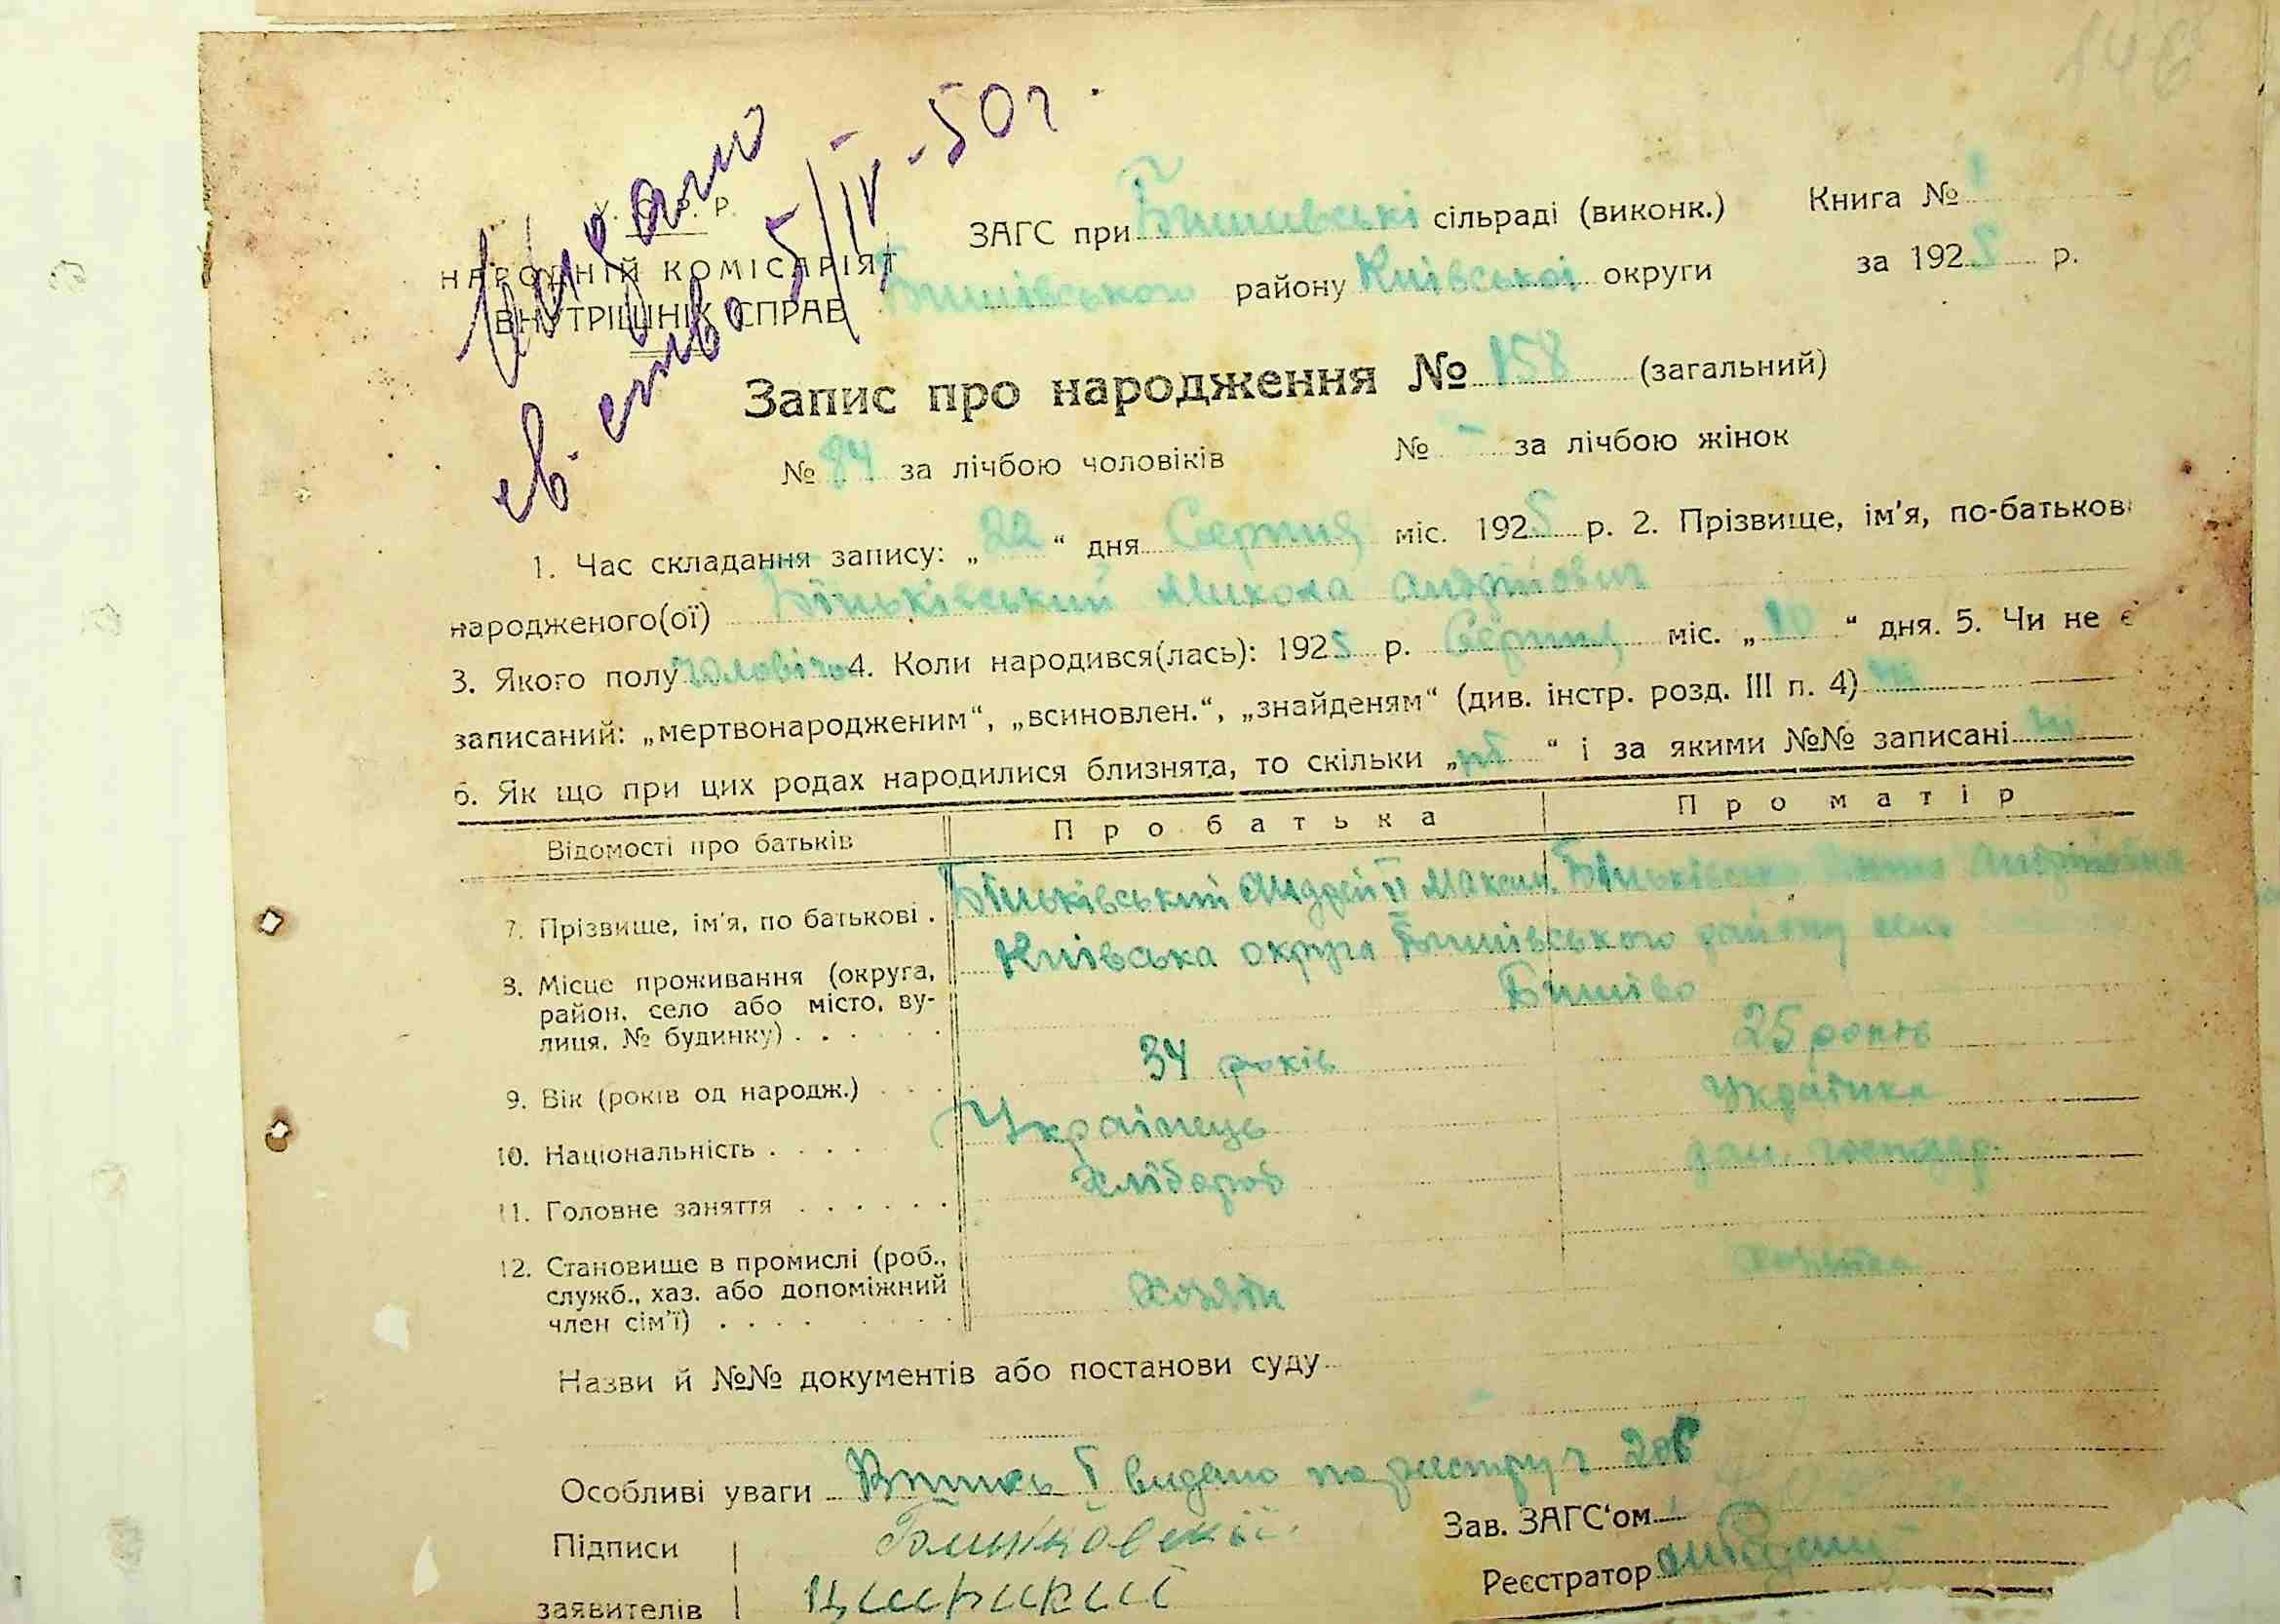 146
Видано
св. ство 5/IV - 50 г.
У. С. Р. Р.
НАРОДНІЙ КОМІСАРІЯТ
ВНУТРІШНІХ СПРАВ
ЗАГС при Бишивські сільраді (виконк.) Книга № 1
Бишівського району Київської округи за 1925 р.
Запис про народження № 158 (загальний)
№ 84 за лічбою чоловіків № - за лічбою жінок
1. Час складання запису: „22“ дня Серпня міс. 1925 р. 2. Прізвище, ім'я, по-батькові
народженого(ої) Біньківський Микола Андрійович
3. Якого полу чоловічо 4. Коли народився(лась): 1925 р. Серпня міс. „10“ дня. 5. Чи не є
записаний: „мертвонародженим“, „всиновлен.“, „знайденям“ (див. інстр. розд. III п. 4) ні
6. Як що при цих родах народилися близнята, то скільки „ні“ і за якими №№ записані ні
Відомості про батьків Про батька Про матір
7. Прізвище, ім'я, по батькові . Біньківський Андрей Максим. Біньківська Андріївна
8. Місце проживання (округа, Київська округа Бишівського району село
район, село або місто, ву-
лиця, № будинку) . . . . . . Бишіво
9. Вік (років од народж.) . . . 34 років 25 років
10. Національність . . . . . Українець Українка
11. Головне заняття . . . . . . Хлібороб дом. господар.
12. Становище в промислі (роб.,
служб., хаз. або допоміжний Хозяїн Хозяйка
член сім'ї) . . . . . . . .
Назви й №№ документів або постанови суду -
Особливі уваги Випись видано по реєстру
Підписи Зав. ЗАГС'ом
заявителів Реєстратор